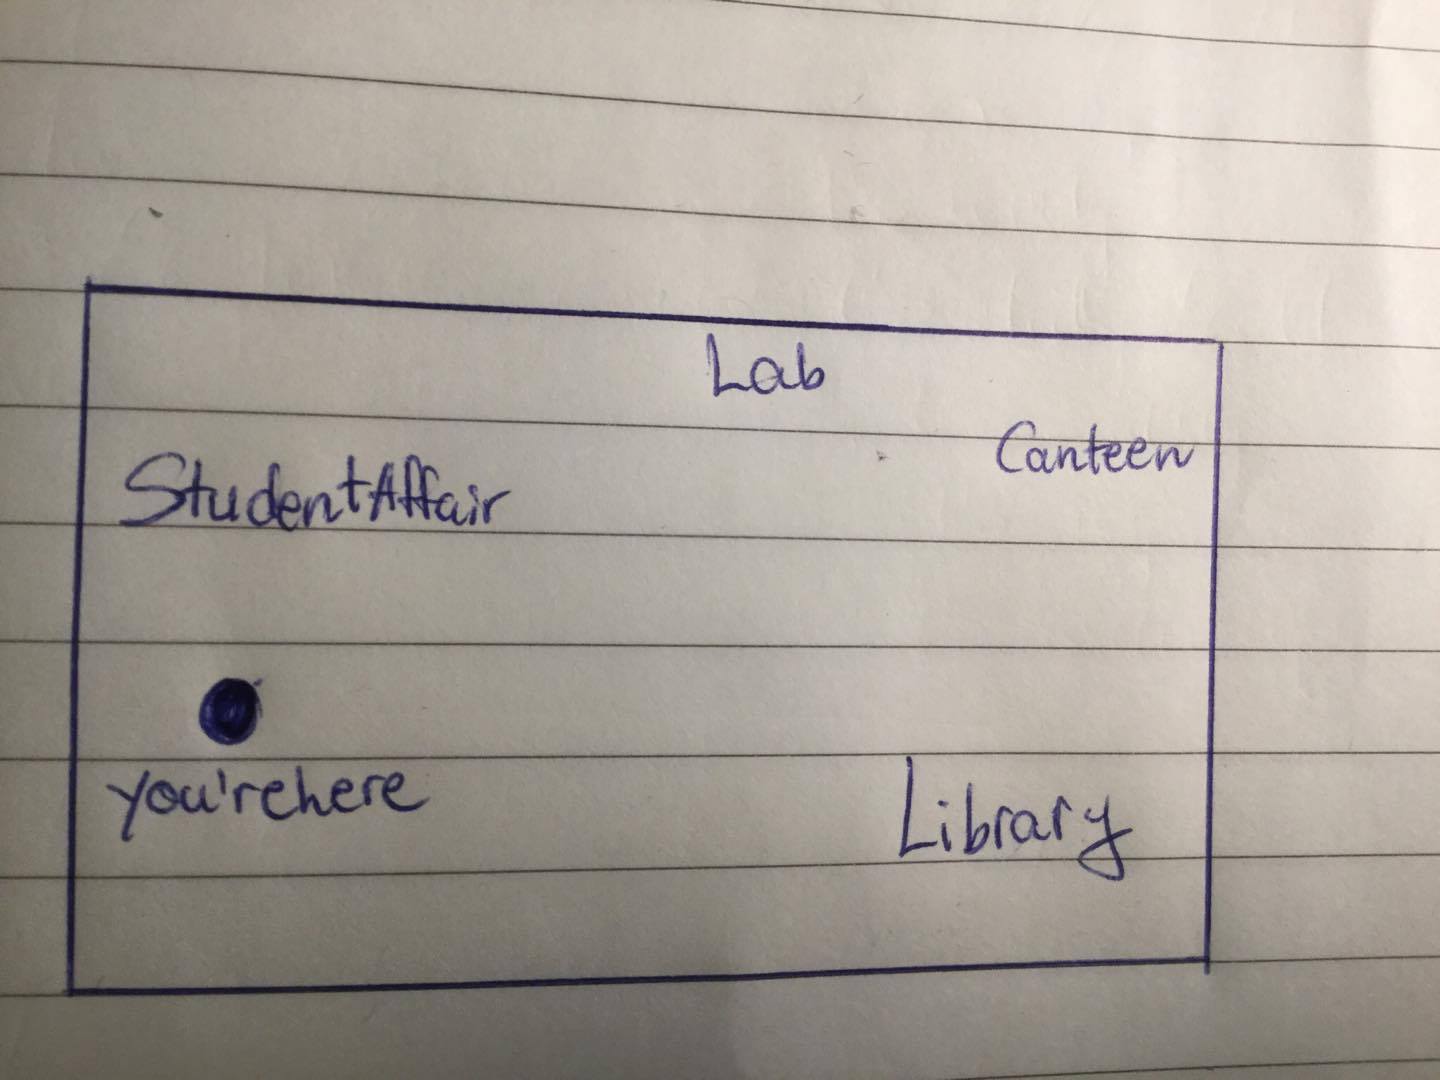 Lab
Canteen
StudentAffair
you'rehere
Library